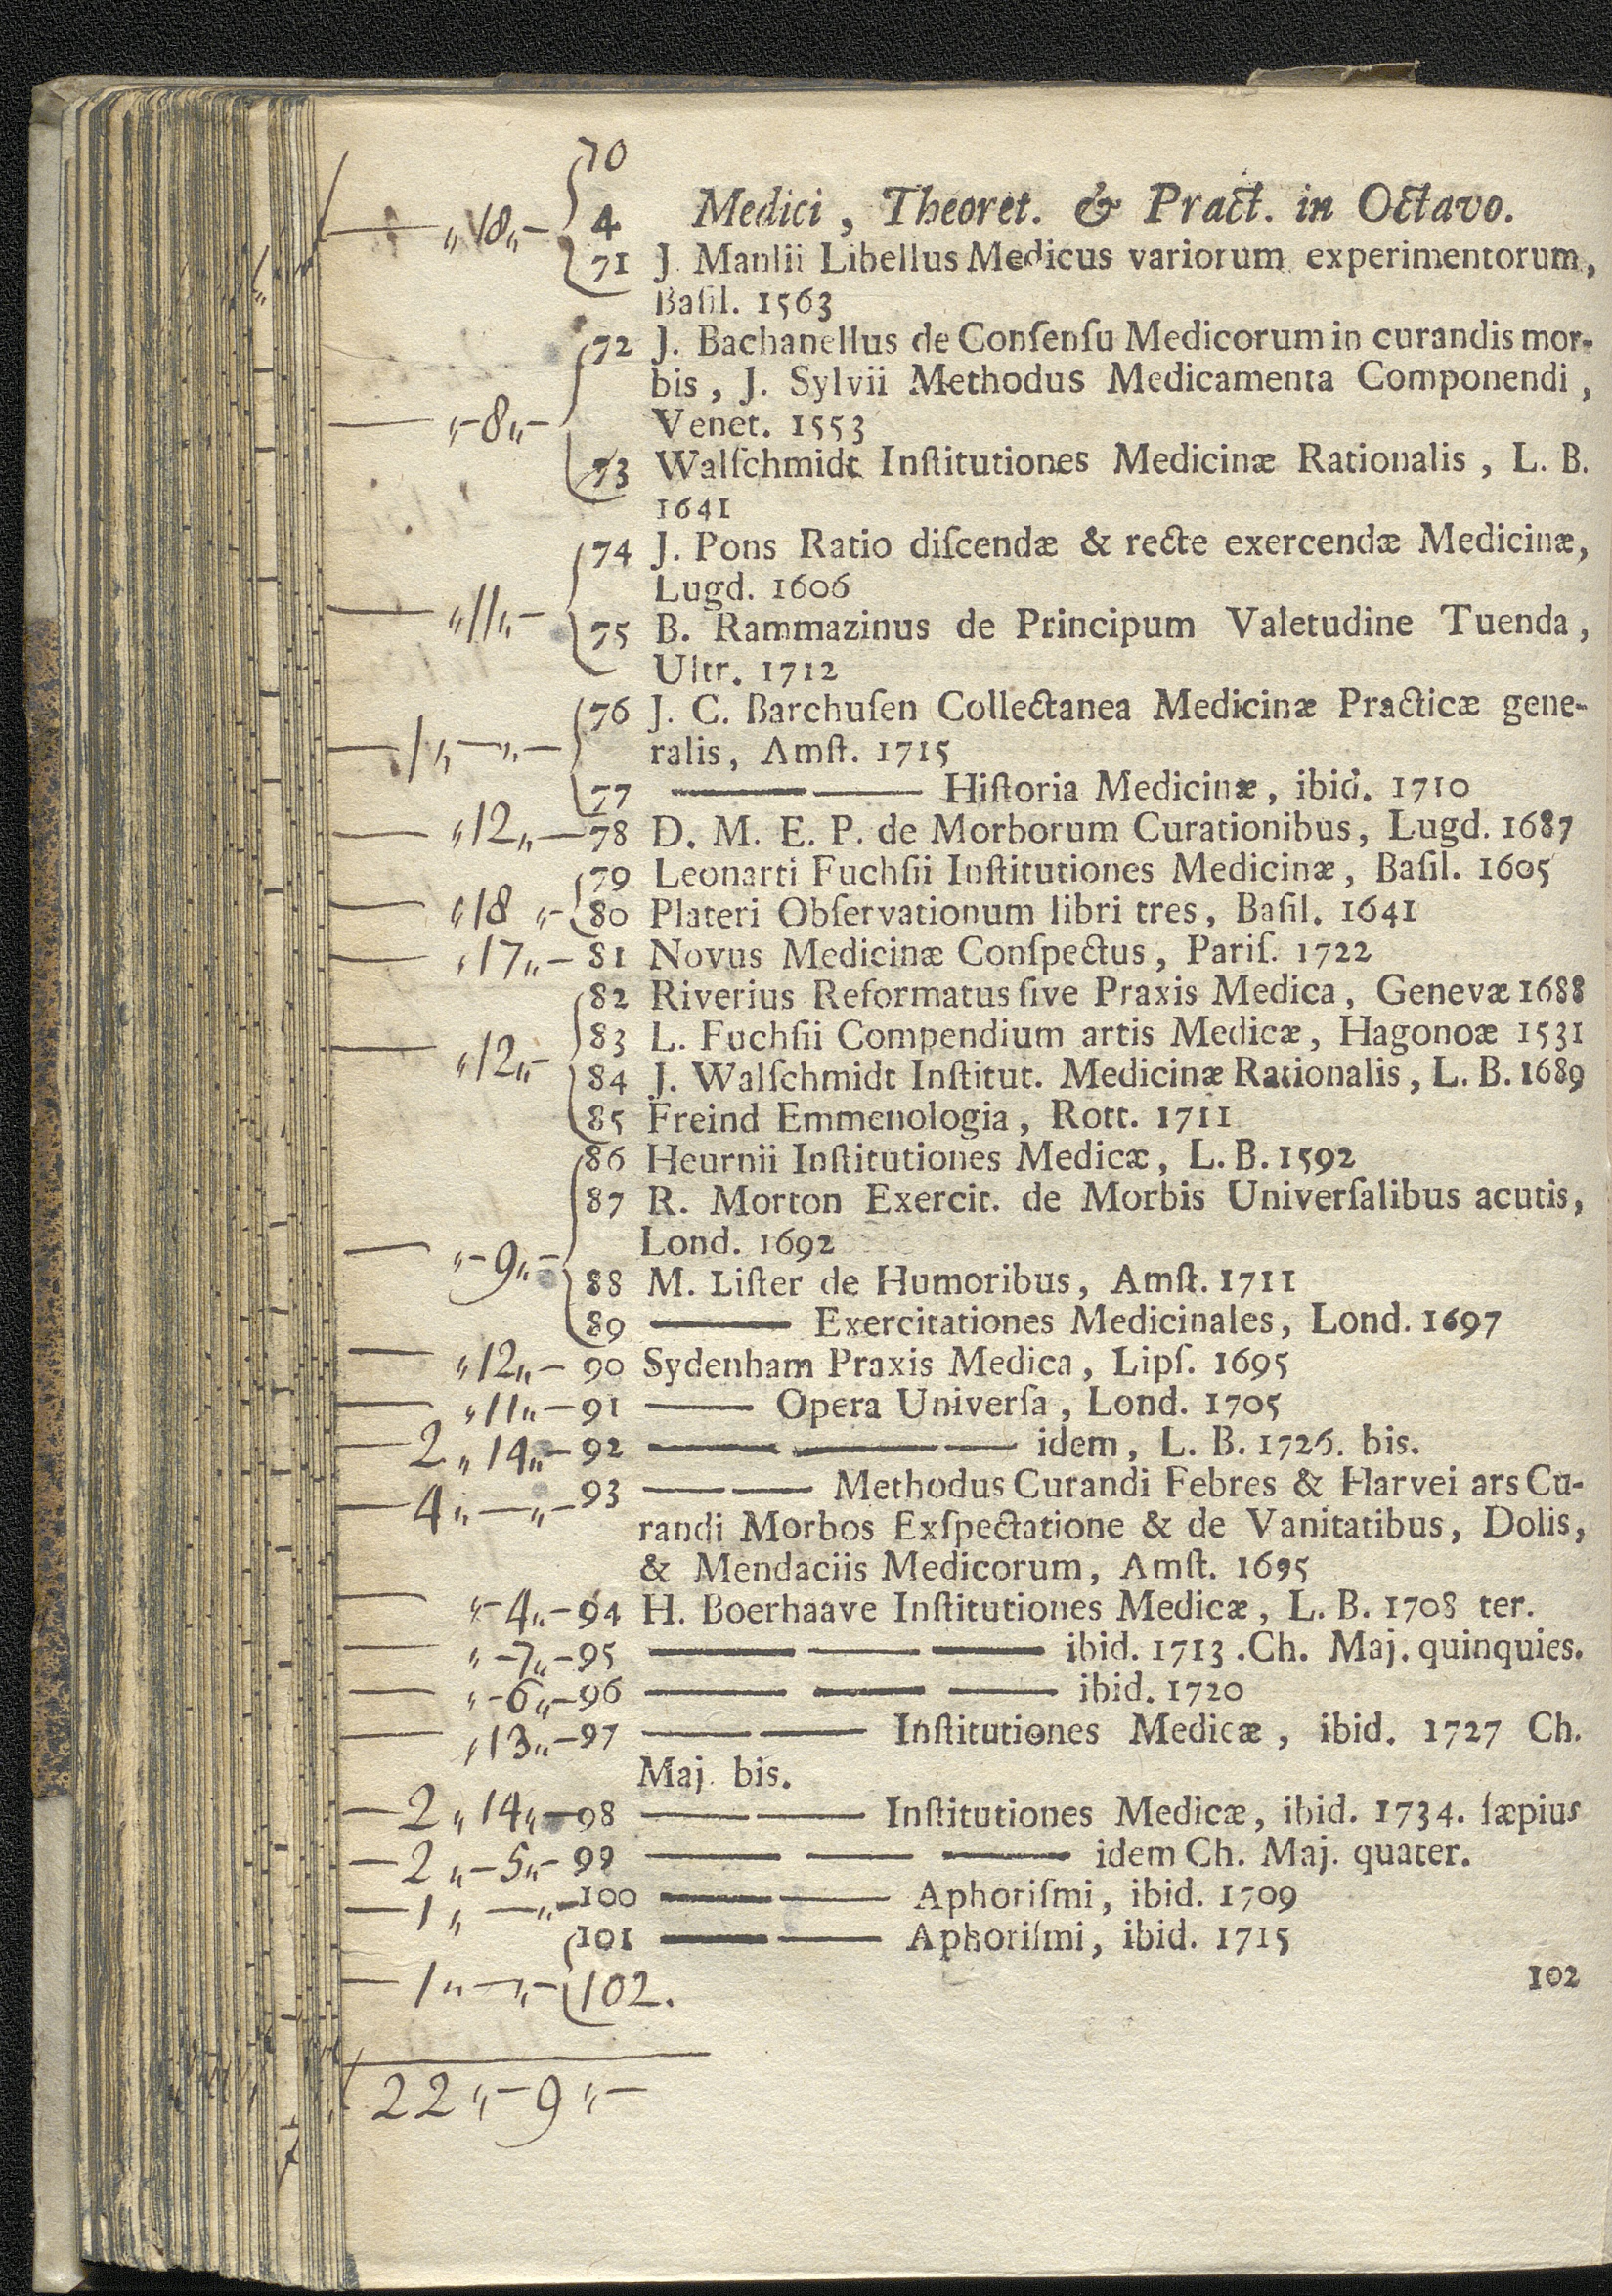 70
„ 18 „ – 4 Medici, Theoret. & Pract. in Octavo.
71 J. Manlii Libellus Medicus variorum experimentorum,
Basil. 1563
72 J. Bachanellus de Conſenſu Medicorum in curandis mor-
bis, J. Sylvii Methodus Medicamenta Componendi,
„ – 8 „ – Venet. 1553
73 Walſchmidt Inſtitutiones Medicinæ Rationalis, L. B.
1641
74 J. Pons Ratio diſcendæ & recte exercendæ Medicinæ,
Lugd. 1606
„ 11 „ – 75 B. Rammazinus de Principum Valetudine Tuenda,
Ultr. 1712
76 J. C. Barchuſen Collectanea Medicinæ Practicæ gene-
1 „ – „ – ralis, Amſt. 1715
77 —— —— Hiſtoria Medicinæ, ibid. 1710
„ 12 „ – 78 D. M. E. P. de Morborum Curationibus, Lugd. 1687
79 Leonarti Fuchſii Inſtitutiones Medicinæ, Baſil. 1605
„ 18 „ – 80 Plateri Obſervationum libri tres, Baſil. 1641
„ 17 „ – 81 Novus Medicinæ Conſpectus, Pariſ. 1722
82 Riverius Reformatus ſive Praxis Medica, Genevæ 1688
83 L. Fuchſii Compendium artis Medicæ, Hagonoæ 1531
„ 12 „ – 84 J. Walſchmidt Inſtitut. Medicinæ Rationalis, L. B. 1689
85 Freind Emmenologia, Rott. 1711
86 Heurnii Inſtitutiones Medicæ, L. B. 1592
87 R. Morton Exercit. de Morbis Univerſalibus acutis,
Lond. 1692
„ – 9 „ – 88 M. Liſter de Humoribus, Amſt. 1711
89 —— Exercitationes Medicinales, Lond. 1697
„ 12 „ – 90 Sydenham Praxis Medica, Lipſ. 1695
„ 11 „ – 91 —— Opera Univerſa, Lond. 1705
2 „ 14 „ – 92 —— —— —— idem, L. B. 1726. bis.
4 „ – „ – 93 —— —— Methodus Curandi Febres & Harvei ars Cu-
randi Morbos Exſpectatione & de Vanitatibus, Dolis,
& Mendaciis Medicorum, Amſt. 1695
„ – 4 „ – 94 H. Boerhaave Inſtitutiones Medicæ, L. B. 1708 ter.
„ – 7 „ – 95 —— —— —— ibid. 1713 .Ch. Maj. quinquies.
„ – 6 „ – 96 —— —— —— ibid. 1720
„ 13 „ – 97 —— —— Inſtitutiones Medicæ, ibid. 1727 Ch.
Maj. bis.
2 „ 14 „ – 98 —— —— Inſtitutiones Medicæ, ibid. 1734. ſæpius
2 „ – 5 „ – 99 —— —— —— idem Ch. Maj. quater.
1 „ – „ – 100 —— —— Aphoriſmi, ibid. 1709
101 —— —— Aphoriſmi, ibid. 1715
102
1 „ – „ – 102.
22 „ – 9 „ –